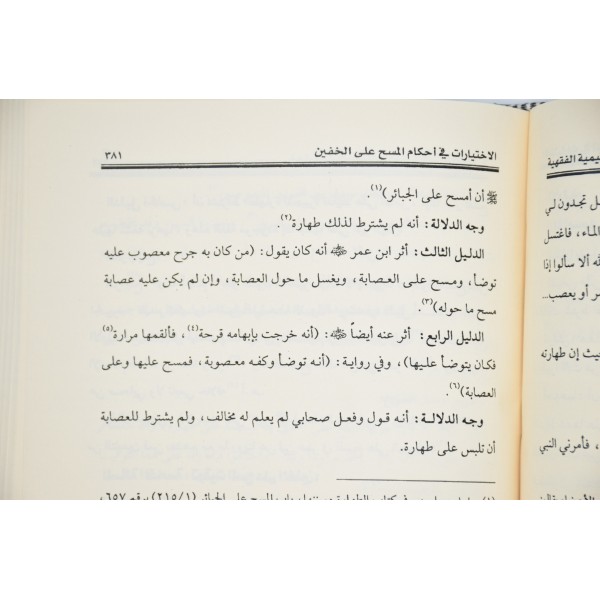 الاختيارات في أحكام المسح على الخفين
٣٨١
ﷺ أن أمسح على الجبائر)(١).
وجه الدلالة: أنه لم يشترط لذلك طهارة(٢).
الدليل الثالث: أثر ابن عمر ﵁ أنه كان يقول: (من كان به جرح معصوب عليه
توضأ، ومسح على العصابة، ويغسل ما حول العصابة، وإن لم يكن عليه عصابة
مسح ما حوله)(٣).
الدليل الرابع: أثر عنه أيضاً ﵁: (أنه خرجت بإبهامه قرحة(٤)، فألقمها مرارة(٥)
فكان يتوضأ عليها)، وفي رواية: (أنه توضأ وكفه معصوبة، فمسح عليها وعلى
العصابة)(٦).
وجه الدلالة: أنه قول وفعل صحابي لم يعلم له مخالف، ولم يشترط للعصابة
أن تلبس على طهارة.
المسح على الجبائر (٢١٥/١) برقم ٦٥٧،
يمية الفقهية
ل تجدون لي
الماء، فاغتسل
ألا سألوا إذا
أو يعصب...
حيث إن طهارته
، فأمرني النبي